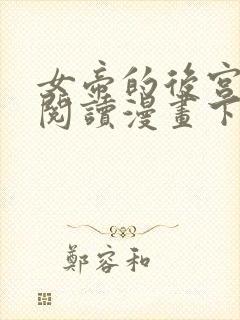 女帝的後宮
閱讀漫畫下
鄭容和